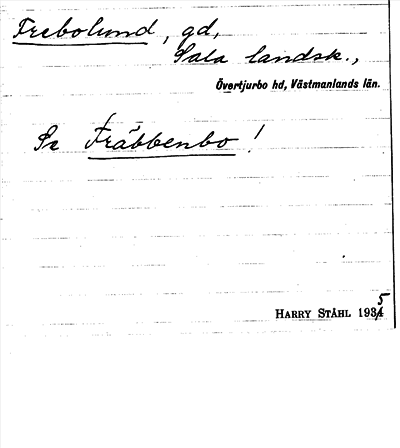 Frebolund, gd,
Sala landsk.,
Övertjurbo hd, Västmanlands län.
Se Fräbbenbo!
HARRY STÅHL 1935